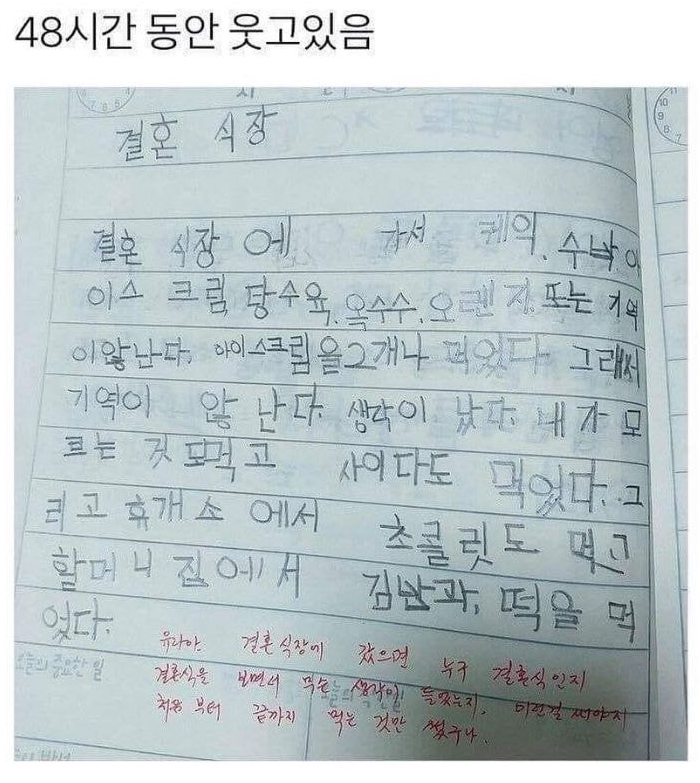 48시간 동안 웃고있음
결혼 식장
결혼 식장 에 가서 케익. 수박 아
이스 크림 탕수육. 옥수수. 오렌지. 또는 기역
이않난다. 아이스크림을2개나 먹었다. 그래서
기역이 않 난다. 생각이 났다. 내가 모
르는 것 또먹고 사이다도 먹었다. 그
리고 휴개소 에서 초콜릿도 먹고
할머니 집에서 김밥과, 떡을 먹
었다.
유라야. 결혼식장에 갔으면 누구 결혼식인지
결혼식을 보면서 무슨 생각이 들었는지. 이런걸 써야지
처음 부터 끝까지 먹는 것만 썼구나.
오늘의 중요한 일